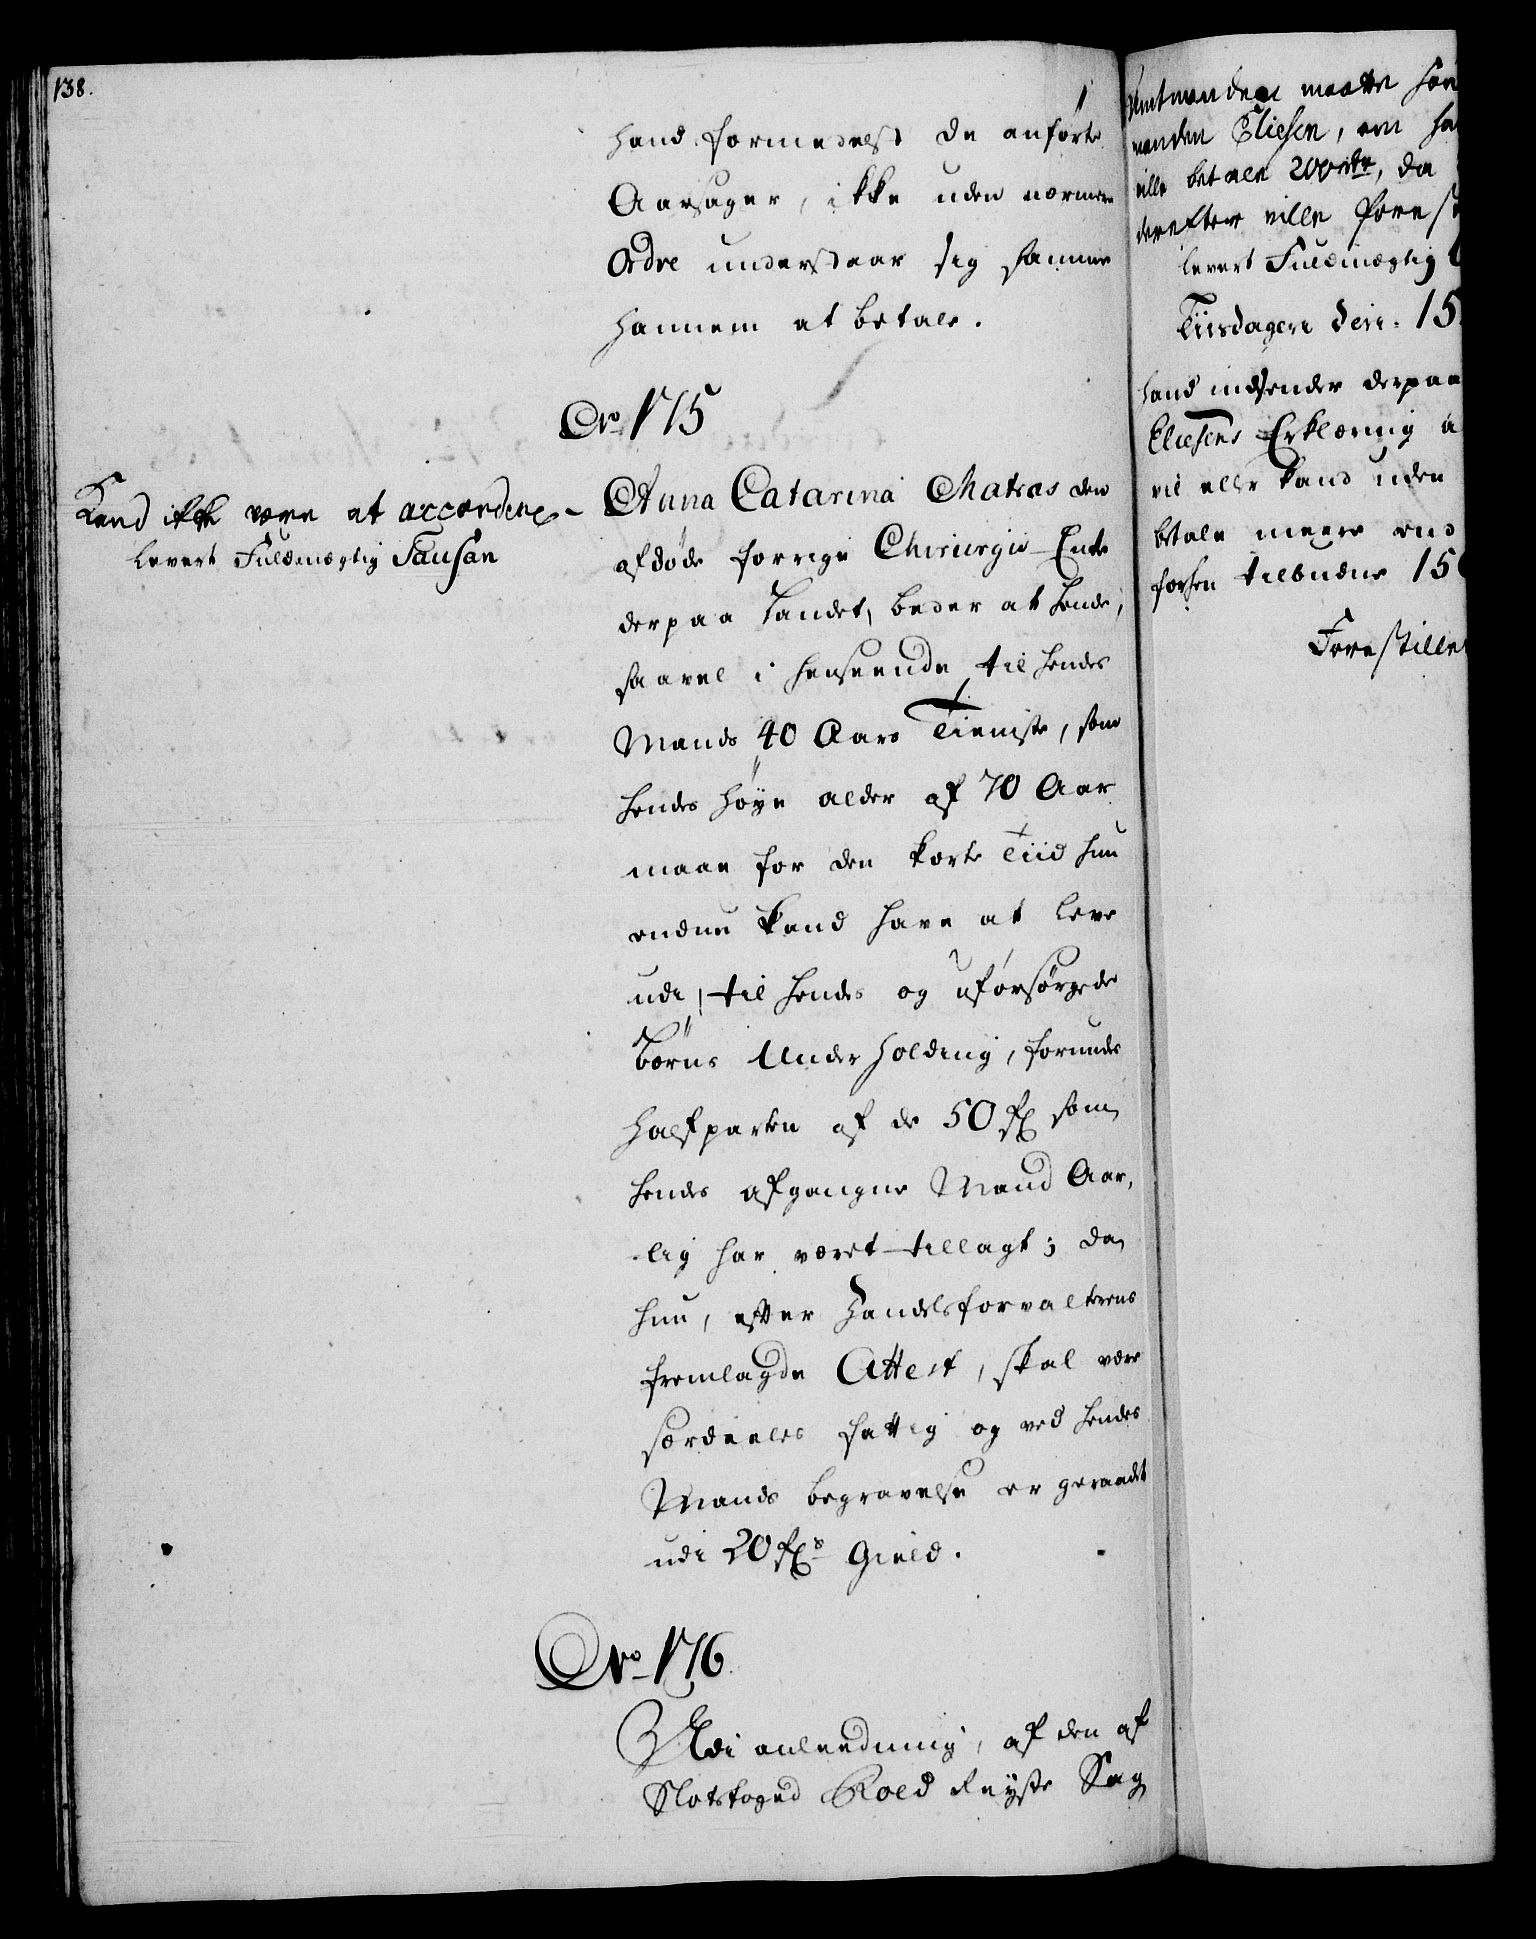 138.
hand formedelst de anførte
Aarsager, ikke uden nærmere
Ordre understaar sig samme
hannem at betale.
No. 175
Kand ikke være at accordere
levert Fuldmægtig Fausan
Anna Catarina Matras den
afdøde forrige Chirurgi Enke
derpaa Landet, beder at hende,
saavel i henseende til hendes
Mands 40 Aars Tieniste, som
hendes høye alder af 70 Aar
maae for den korte Tiid hun
endnu kand have at leve
udi, til hendes og uforsørgede
Børns Underholding, forundes
halfparten af de 50 f som
hendes afgangne Mand Aar,
lig har været tillagt; da
hun, efter Handelsforvalterens
fremlagde Attest, skal være
særdeeles fattig og ved hendes
Mands begravelse er geraadet
udi 20 f Gield.
No. 176
Udi anleedning, af den af
Slotsfoged Roed reyste Sag
Amtmanden maatte
manden Eliesen, om
ville betale 200, da
derefter ville
levert Fuldmægtig
Tiisdagen den 15
hand indsender derpaa
Eliesens Erklæring
vil eller kand uden
betale meere end
tilbudne 15